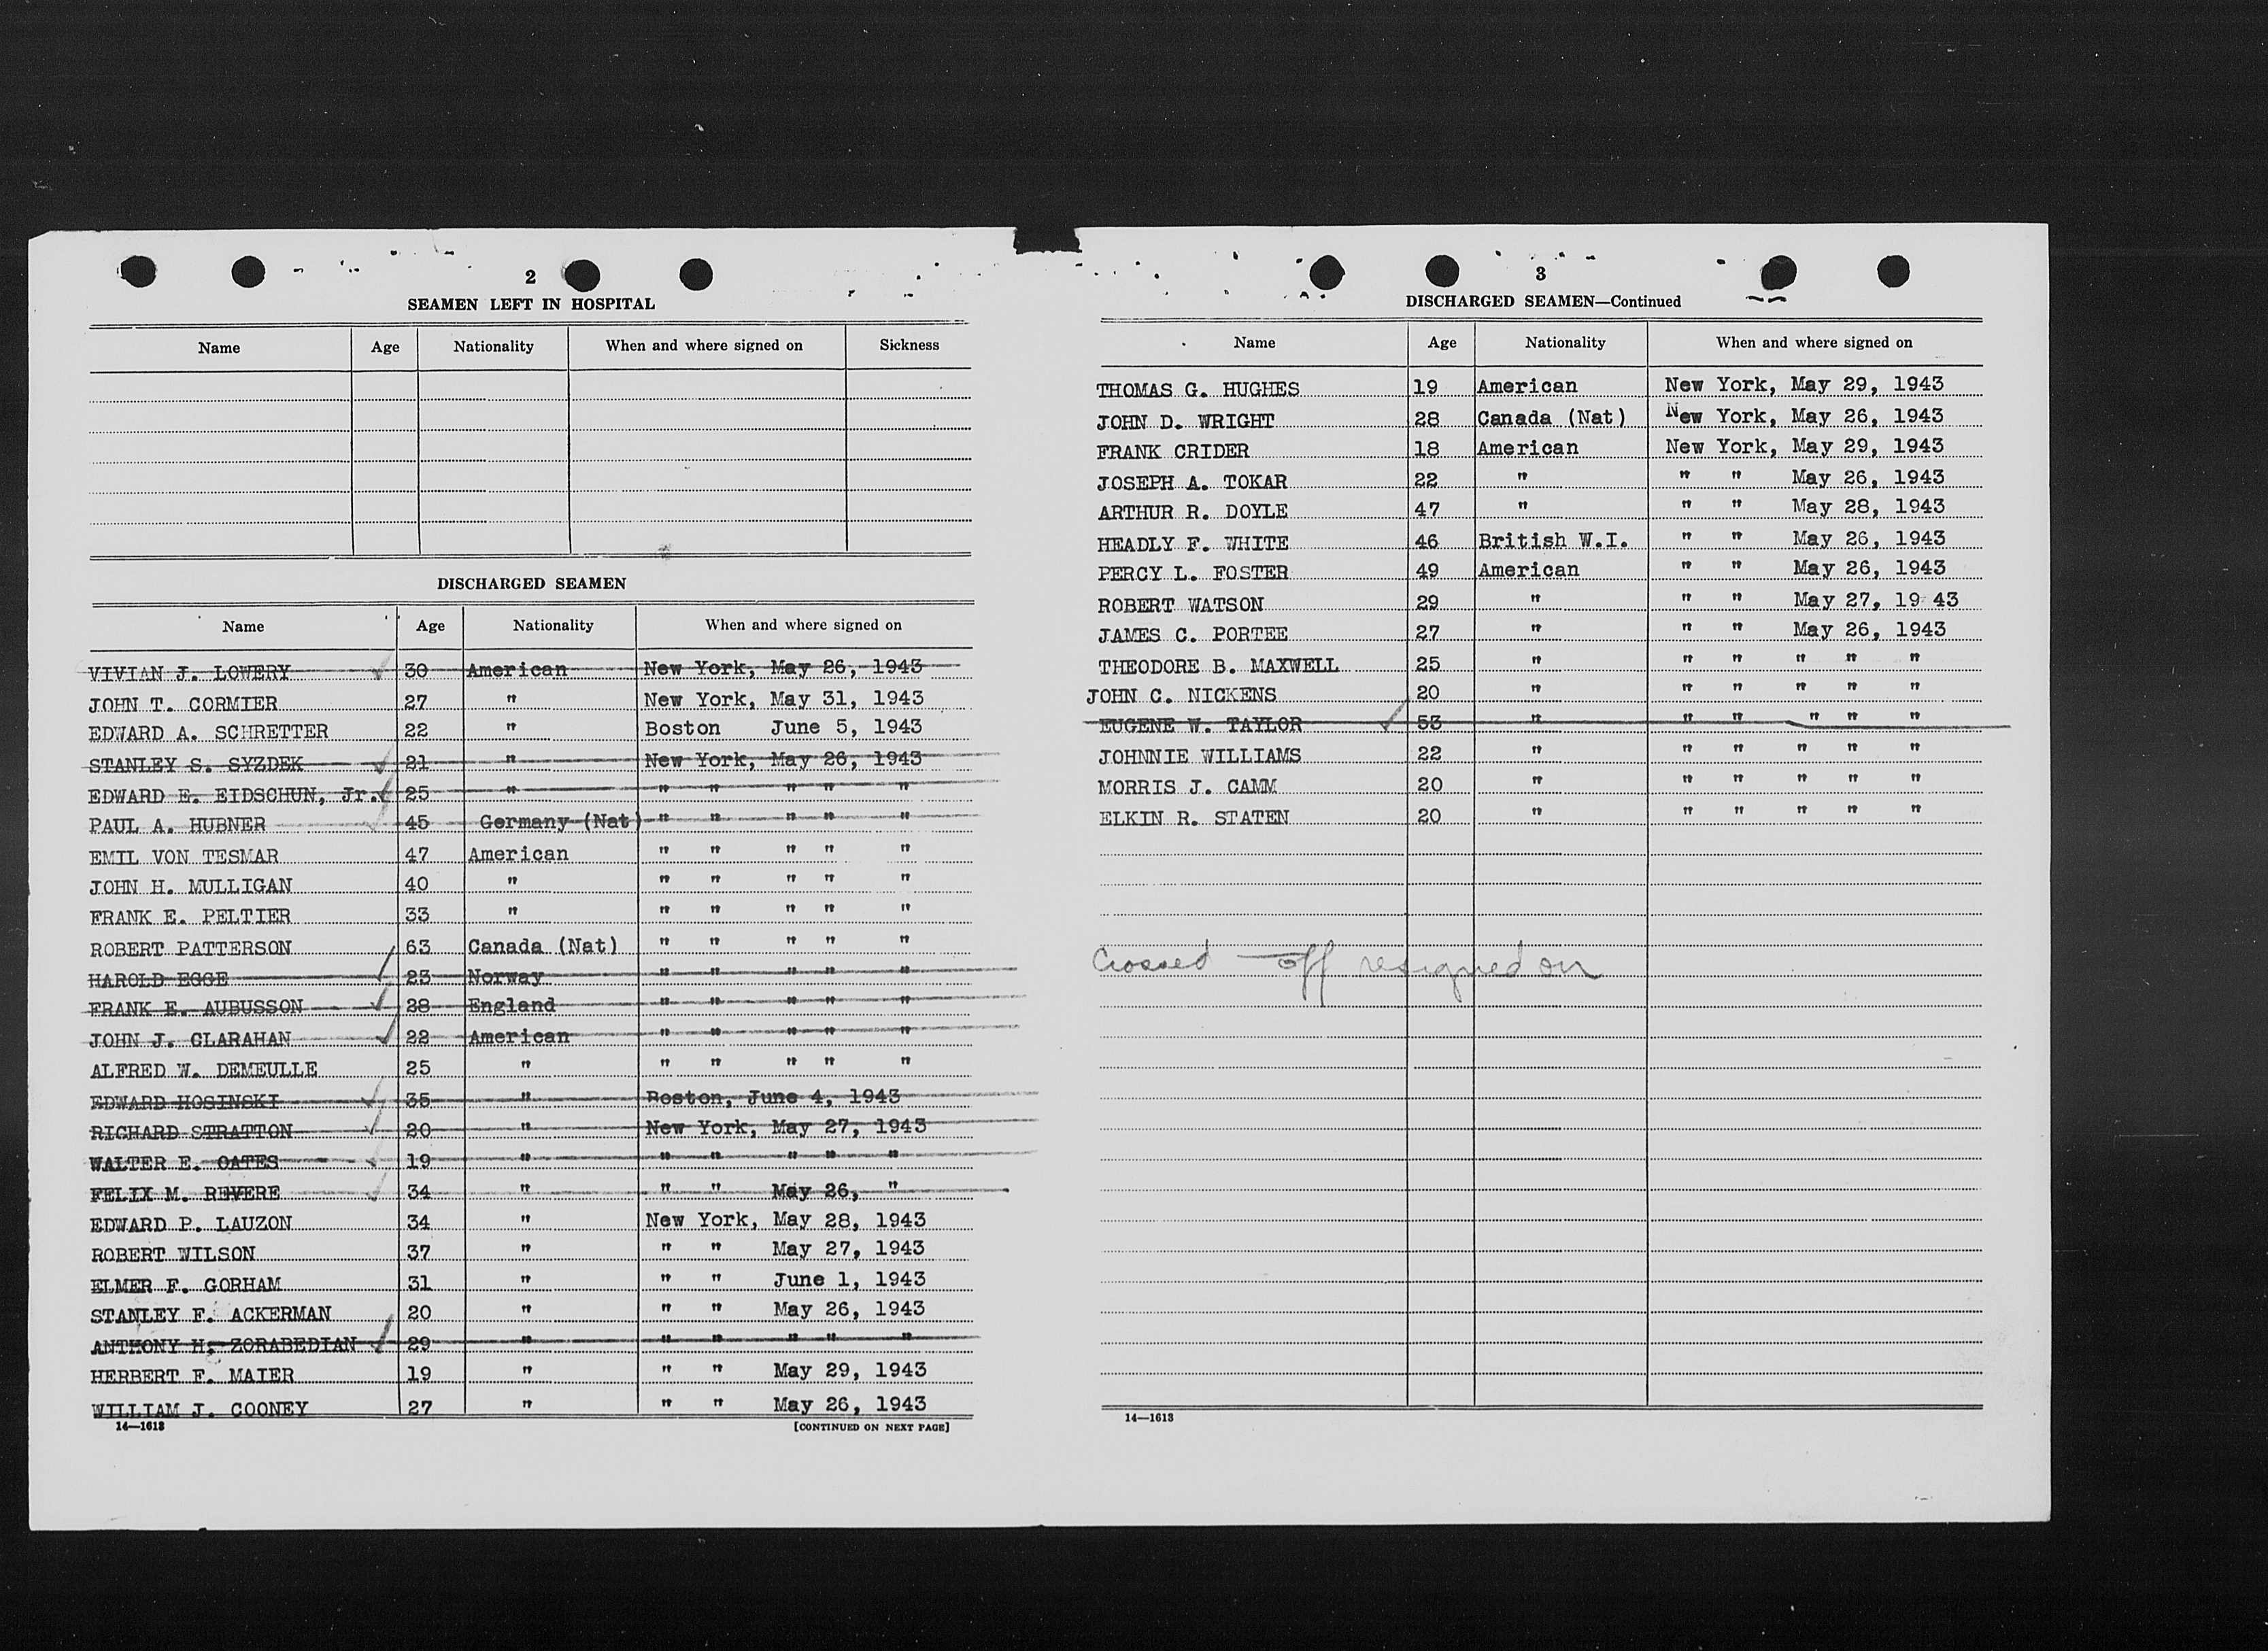 2
SEAMEN LEFT IN HOSPITAL
Name Age Nationality When and where signed on Sickness
DISCHARGED SEAMEN
Name Age Nationality When and where signed on
VIVIAN J. LOWERY 30 American New York, May 26, 1943
JOHN T. CORMIER 27 " New York, May 31, 1943
EDWARD A. SCHRETTER 22 " Boston June 5, 1943
STANLEY S. SYZDEK 21 " New York, May 26, 1943
EDWARD E. EIDSCHUN, Jr. 25 " " " " " "
PAUL A. HUBNER 45 Germany (Nat) " " " " "
EMIL VON TESMAR 47 American " " " " "
JOHN H. MULLIGAN 40 " " " " " "
FRANK E. PELTIER 33 " " " " " "
ROBERT PATTERSON 63 Canada (Nat) " " " " "
HAROLD EGGE 23 Norway " " " " "
FRANK E. AUBUSSON 28 England " " " " "
JOHN J. CLARAHAN 22 American " " " " "
ALFRED W. DEMEULLE 25 " " " " " "
EDWARD HOSINSKI 35 " Boston, June 4, 1943
RICHARD STRATTON 20 " New York, May 27, 1943
WALTER E. OATES 19 " " " " " "
FELIX M. REVERE 34 " " " May 26, "
EDWARD P. LAUZON 34 " New York, May 28, 1943
ROBERT WILSON 37 " " " May 27, 1943
ELMER F. GORHAM 31 " " " June 1, 1943
STANLEY F. ACKERMAN 20 " " " May 26, 1943
ANTHONY H. ZORABEDIAN 29 " " " " " "
HERBERT F. MAIER 19 " " " May 29, 1943
WILLIAM J. COONEY 27 " " " May 26, 1943
14—1613 [CONTINUED ON NEXT PAGE]
3
DISCHARGED SEAMEN—Continued
Name Age Nationality When and where signed on
THOMAS G. HUGHES 19 American New York, May 29, 1943
JOHN D. WRIGHT 28 Canada (Nat) New York, May 26, 1943
FRANK CRIDER 18 American New York, May 29, 1943
JOSEPH A. TOKAR 22 " " " May 26, 1943
ARTHUR R. DOYLE 47 " " " May 28, 1943
HEADLY F. WHITE 46 British W.I. " " May 26, 1943
PERCY L. FOSTER 49 American " " May 26, 1943
ROBERT WATSON 29 " " " May 27, 19 43
JAMES C. PORTEE 27 " " " May 26, 1943
THEODORE B. MAXWELL 25 " " " " " "
JOHN C. NICKENS 20 " " " " " "
EUGENE W. TAYLOR 53 " " " " " "
JOHNNIE WILLIAMS 22 " " " " " "
MORRIS J. CAMM 20 " " " " " "
ELKIN R. STATEN 20 " " " " " "
Crossed off resigned on
14—1613